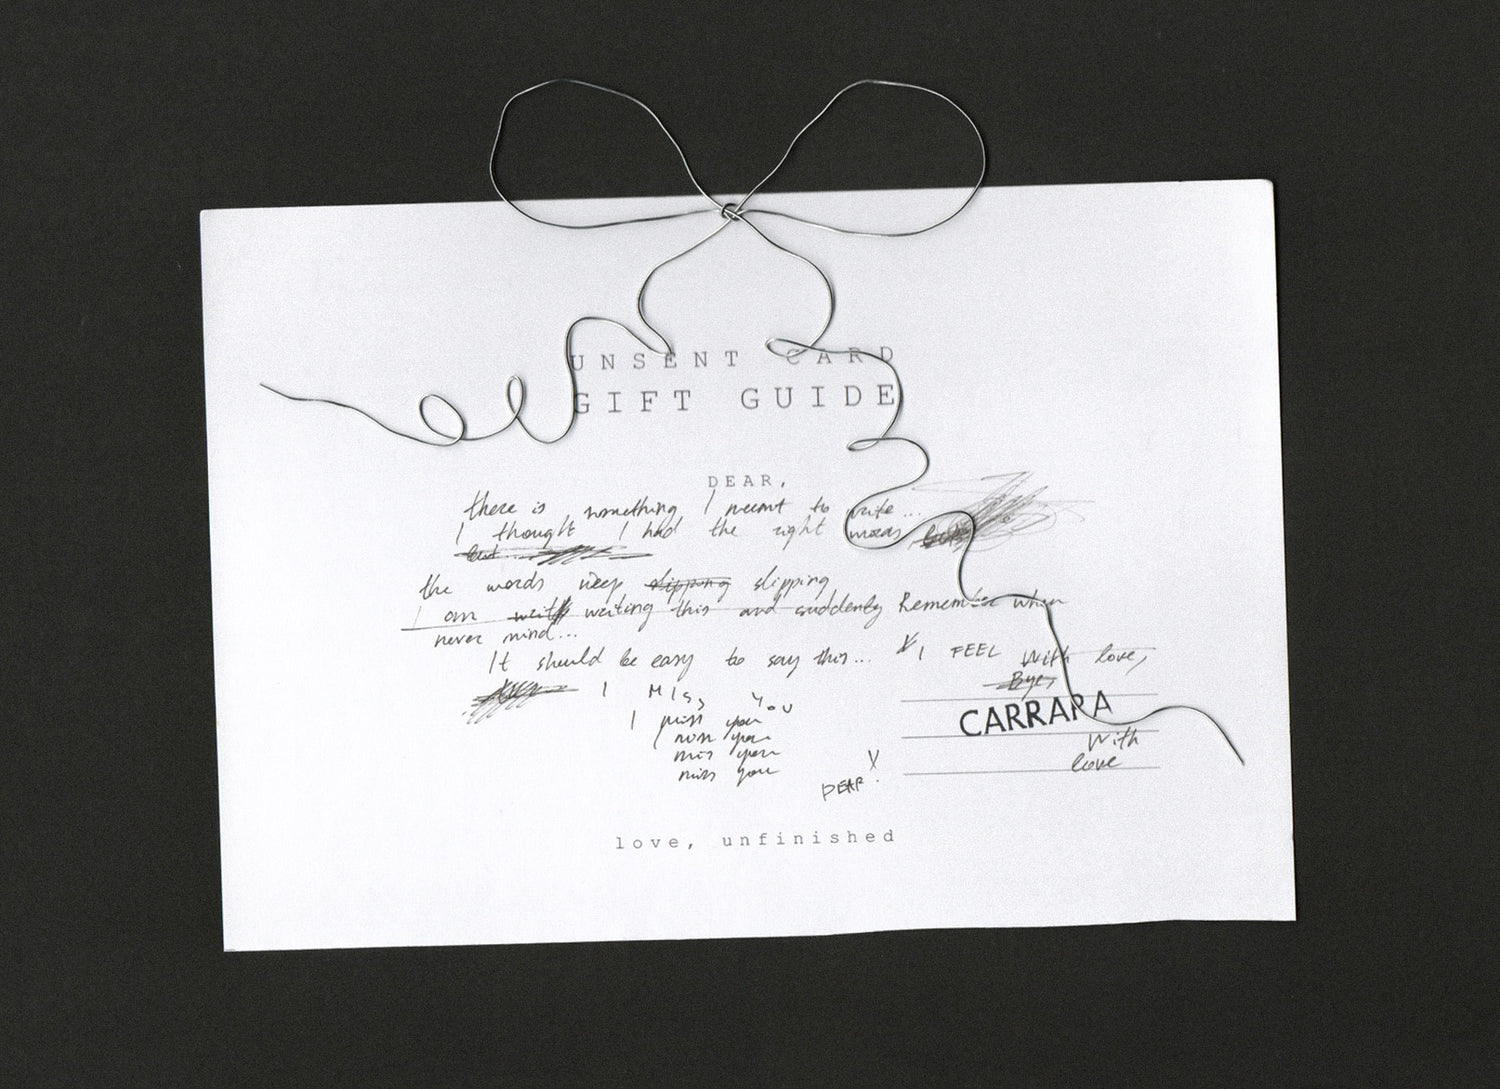 UNSENT CARD
GIFT GUIDE
DEAR,
there is something I meant to write...
I thought I had the right words, but
but
the words keep slipping slipping
I am writing this and suddenly Remember when
never mind...
It should be easy to say this... I FEEL With love,
Bye,
I MISS YOU
I miss you
miss you
miss you
miss you
CARRARA
With
love
DEAR
love, unfinished